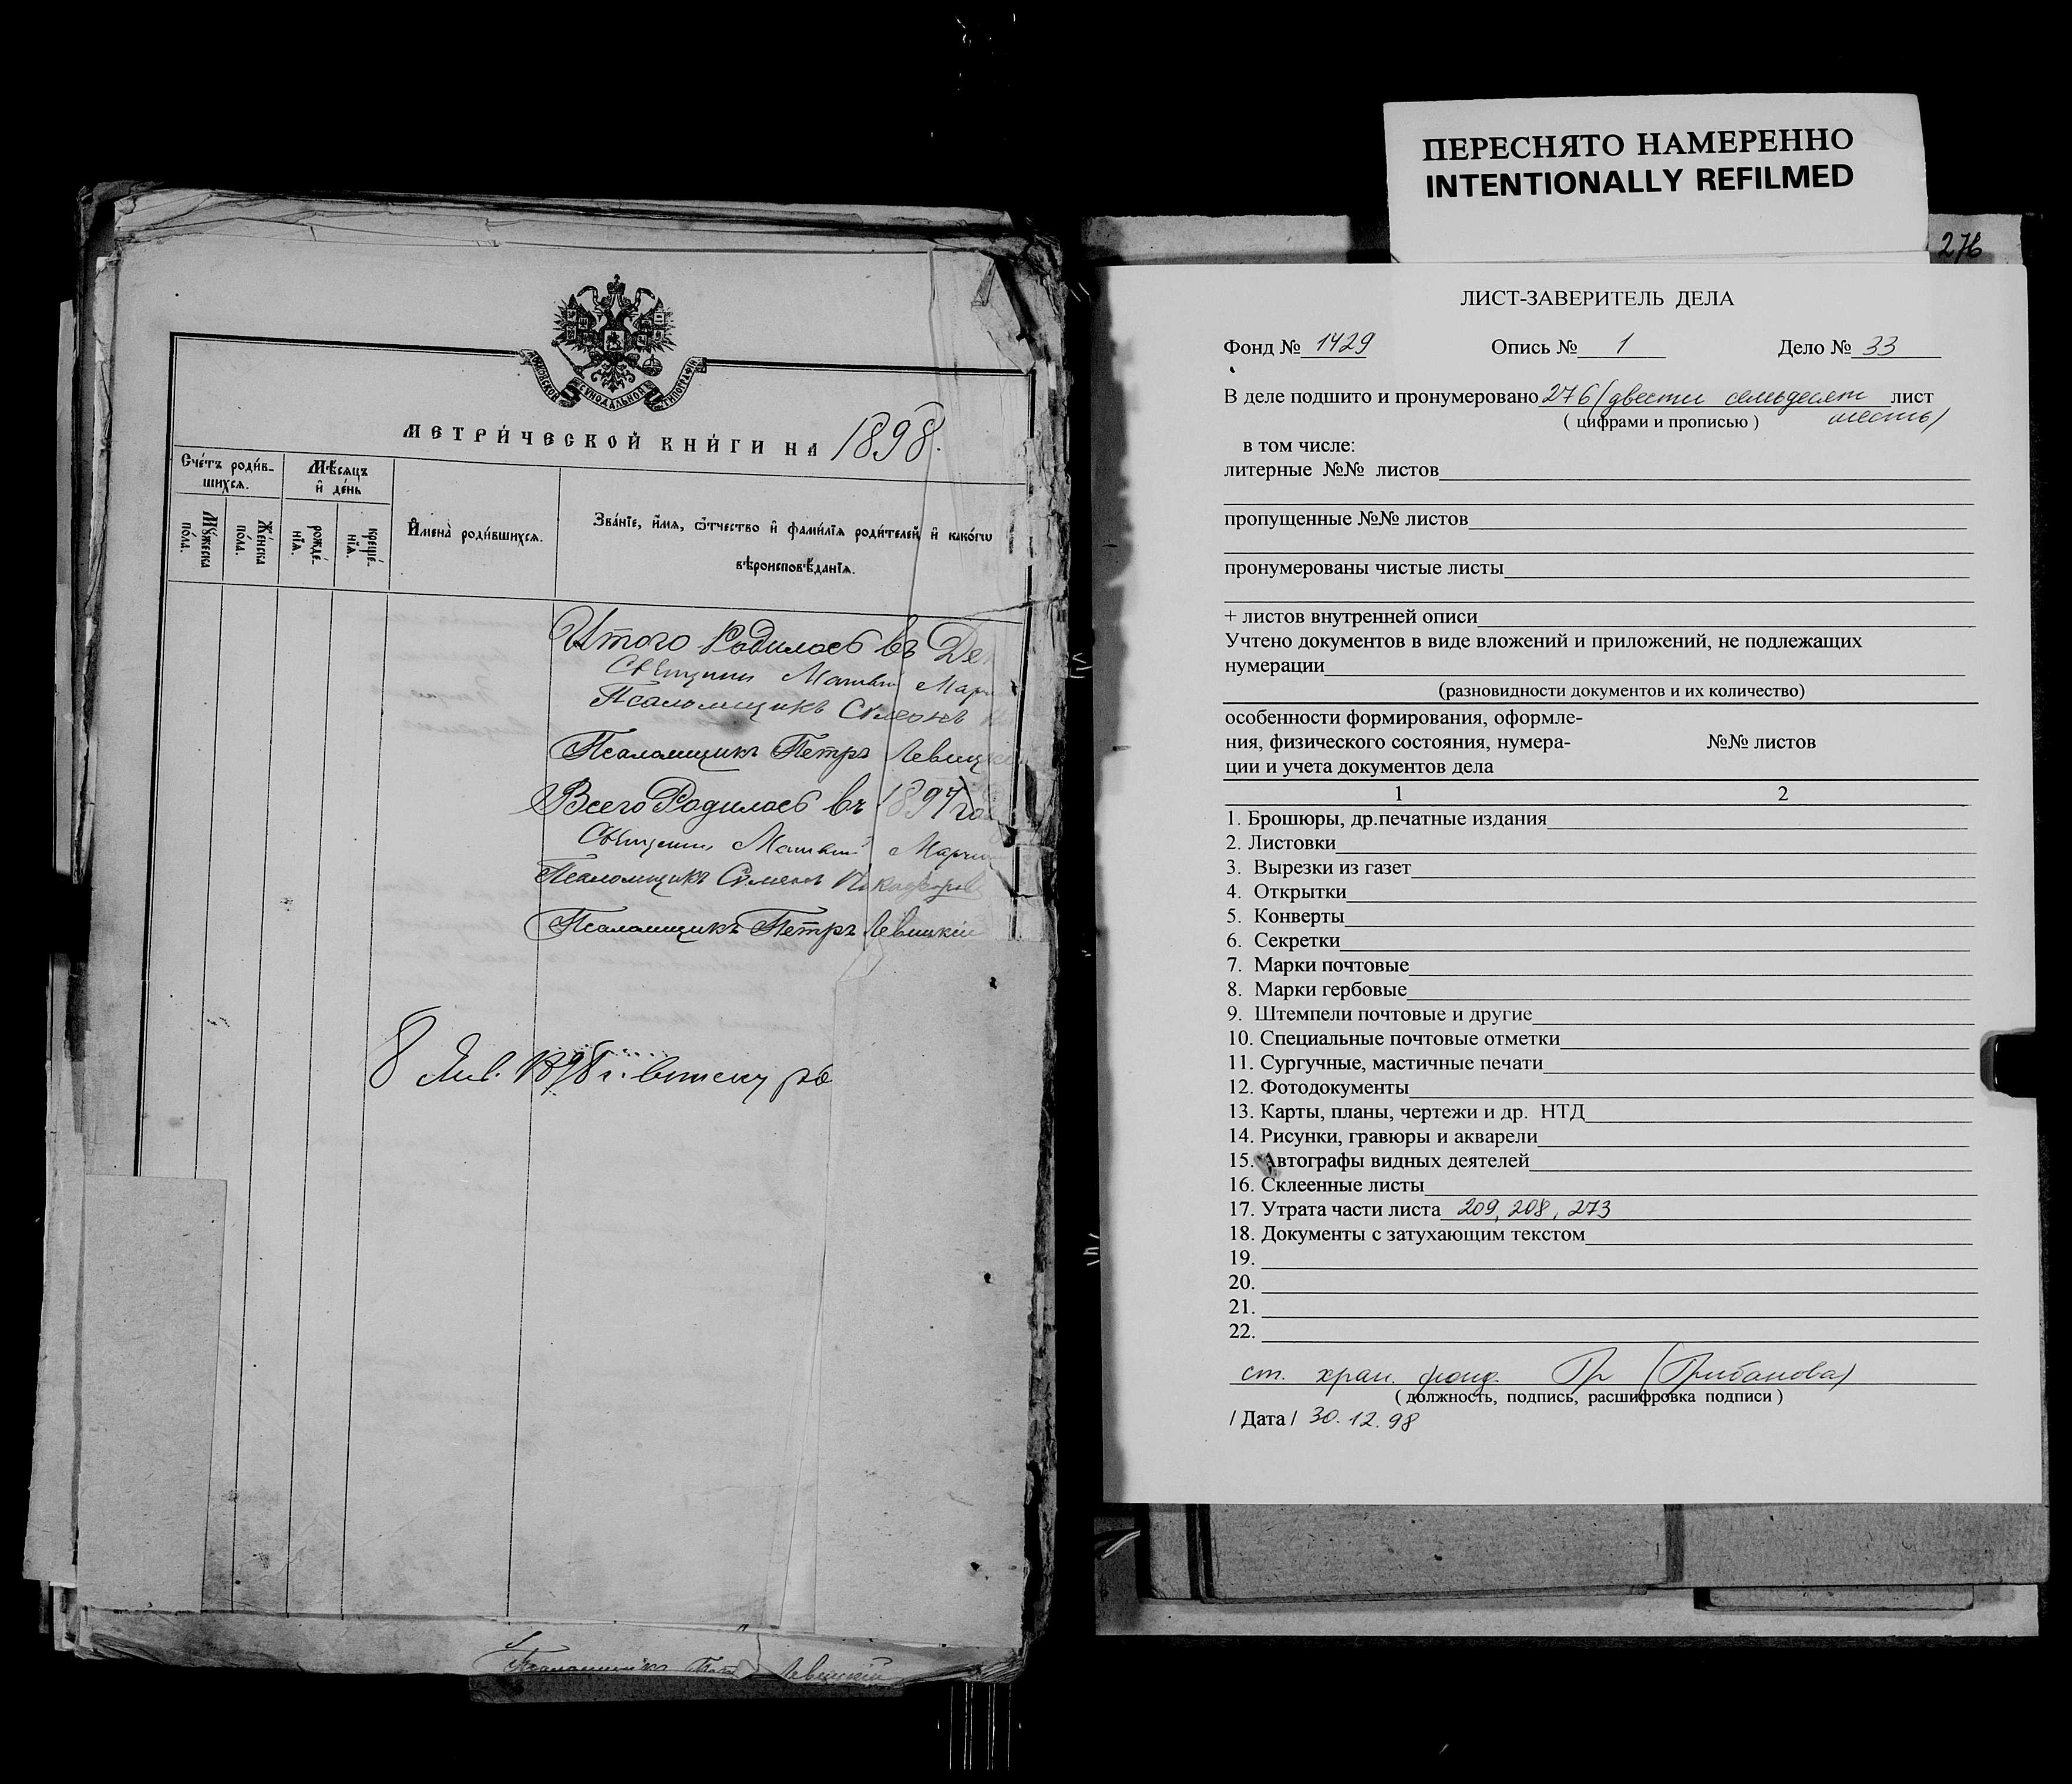 МОСКОВСКОЙ СУНОДАЛЬНОЙ ТИПОГРАФІИ
МЕТРИ́ЧЕСКОЙ КНИ́ГИ НА 1898.
Сче́тъ роди́в-
шихсѧ.
Мѣ́сяцъ
и҆ де́нь
Мꙋ́жеска
по́ла.
Же́нска
по́ла.
рожде́-
нїѧ.
креще́-
нїѧ.
И҆мена̀ роди́вшихсѧ.
Зва́нїе, и҆́мѧ, ѻ҆́тчество и҆ фами́лїѧ роди́телей, и҆ како́гѡ
вѣроисповѣ́данїѧ.
Итого Родилось въ Де
Матвѣй Мар
Псаломщикъ Симеонъ
Псаломщикъ Петръ Левицкі
Всего Родилось въ 1897 го
Матвѣй Марч
Псаломщикъ Симеонъ
Псаломщикъ Петръ Левицкій
8 Янв. 1898 г.
Псаломщикъ Петръ Левицкій
ПЕРЕСНЯТО НАМЕРЕННО
INTENTIONALLY REFILMED
276
ЛИСТ-ЗАВЕРИТЕЛЬ ДЕЛА
Фонд № 1429 Опись № 1 Дело № 33
В деле подшито и пронумеровано 276 (двести семьдесят лист
( цифрами и прописью ) шесть)
в том числе:
литерные №№ листов
пропущенные №№ листов
пронумерованы чистые листы
+ листов внутренней описи
Учтено документов в виде вложений и приложений, не подлежащих
нумерации
(разновидности документов и их количество)
особенности формирования, оформле-
ния, физического состояния, нумера- №№ листов
ции и учета документов дела
1 2
1. Брошюры, др.печатные издания
2. Листовки
3. Вырезки из газет
4. Открытки
5. Конверты
6. Секретки
7. Марки почтовые
8. Марки гербовые
9. Штемпели почтовые и другие
10. Специальные почтовые отметки
11. Сургучные, мастичные печати
12. Фотодокументы
13. Карты, планы, чертежи и др. НТД
14. Рисунки, гравюры и акварели
15. Автографы видных деятелей
16. Склеенные листы
17. Утрата части листа 209, 208, 273
18. Документы с затухающим текстом
19.
20.
21.
22.
ст. хран. фонд. Гр (Грибанова)
( должность, подпись, расшифровка подписи )
/ Дата / 30.12.98